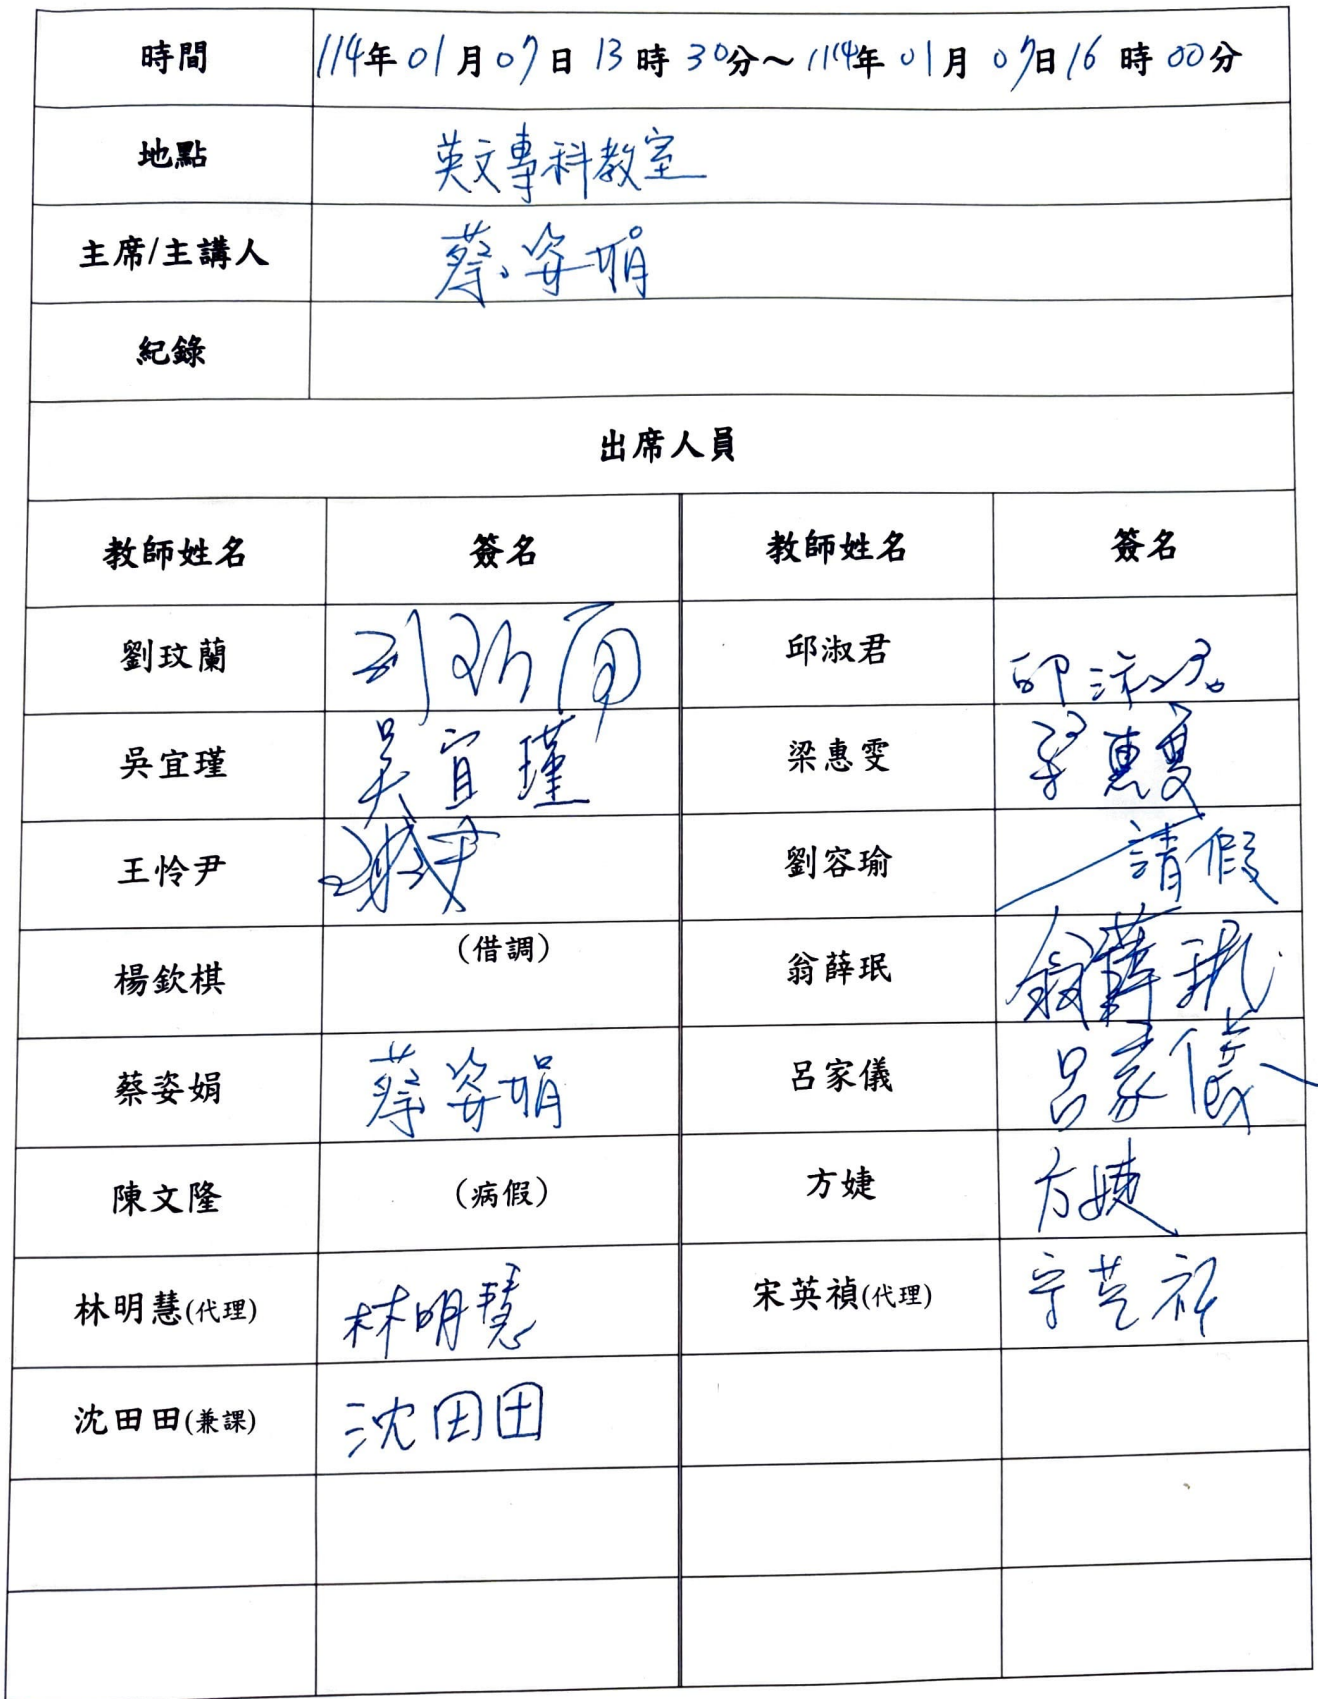 時間 114年01月07日13時30分～114年01月07日16時00分
地點 英文專科教室
主席/主講人 蔡姿娟
紀錄
出席人員
教師姓名 簽名 教師姓名 簽名
劉玟蘭 邱淑君 邱淑君
吳宜瑾 吳宜瑾 梁惠雯 梁惠雯
王怜尹 劉容瑜 請假
楊欽棋 (借調) 翁薛珉 翁薛珉
蔡姿娟 蔡姿娟 呂家儀 呂家儀
陳文隆 (病假) 方婕 方婕
林明慧(代理) 林明慧 宋英禎(代理)
沈田田(兼課) 沈田田